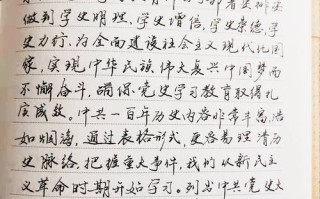 做到学史明理,学史增信,学史崇德,学
史力行,为全面建设社会主义现代化国
家,实现中华民族伟大复兴中国梦而
不懈奋斗,确保党史学习教育取得扎
实成效。中共一百年历史内容非常丰富,浩
如烟海,通过表格形式,更容易理清历
史脉络,把握重大事件,我们从新民主
义革命时期开始学习。列出中共党史大